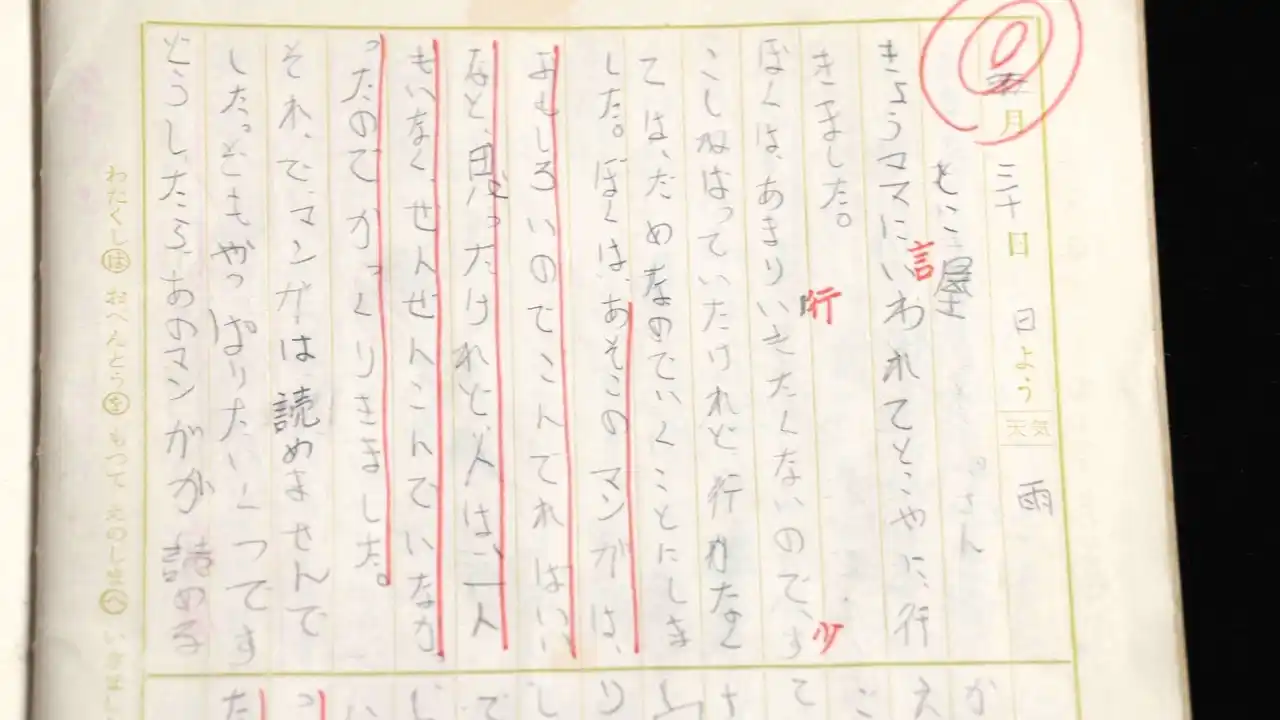 五月 三十日 日よう 天気 雨
とこ屋
さん
きょうママにいわれてとこやに、行
言
きました。
行
ぼくは、あまりいきたくないので、す
少
こしねばっていたけれど行かなく
ては、だめなのでいくことにしま
した。ぼくは、あそこのマンガは、
おもしろいのでこんでればいい、
なと、思ったけれど、人は、一人
もいなく、ぜんぜんこんでいなか
ったのでがっくりきました。
それ、で、マンガは読めませんで
した。
どうしたら、あのマンガが読める
わたくしは おべんとうを もって えのしまへ